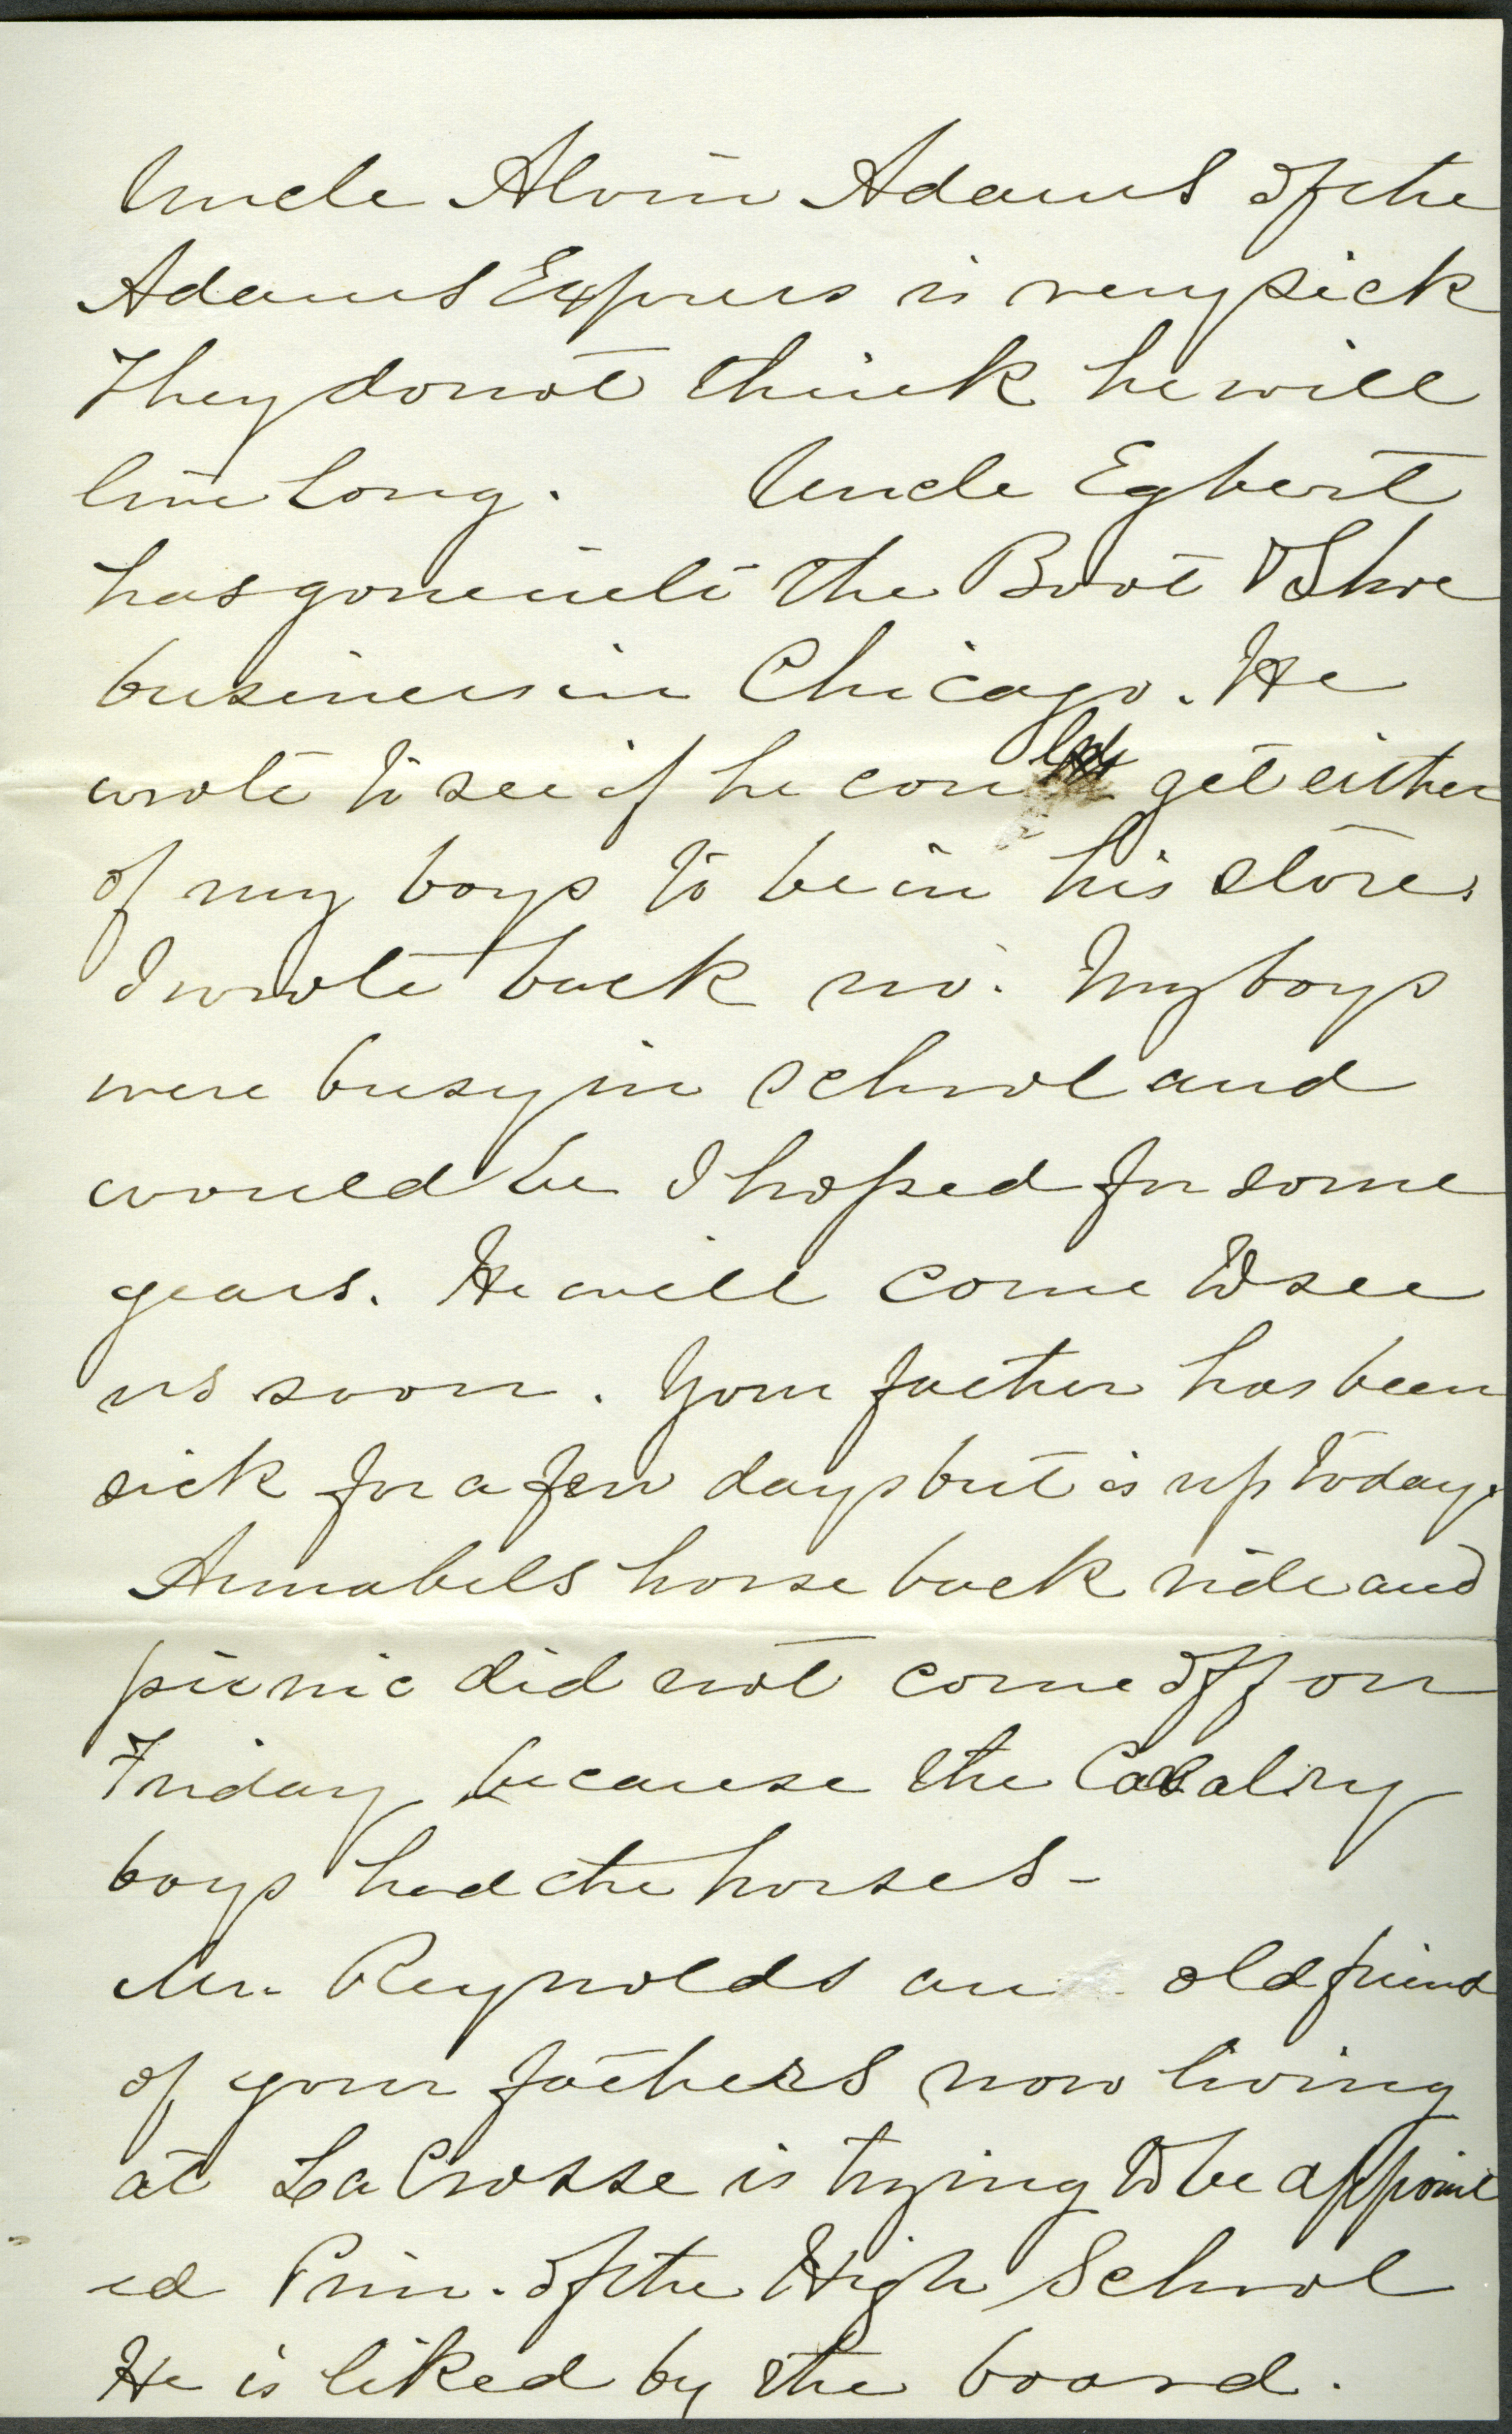 Uncle Alvin Adams of the
Adams Express is very sick
They do not think he will
live long. Uncle Egbert
has gone into the Boot & Shoe
business in Chicago. He
wrote to see if he could get either
of my boys to be in his store.
I wrote back no. My boys
were busy in school and
would be I hoped for some
years. He will come to see
us soon. Your father has been
sick for a few days but is up today.
Annabels horse back ride and
picnic did not come off on
Friday because the Cavalry
boys had the horses -
Mr. Reynolds an old friend
of your fathers now living
at La Crosse is trying to be appoint
ed Prin. of the High School
He is liked by the board.